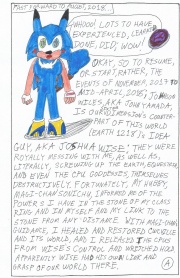 FAST FORWARD TO AUGUST, 2018...
WHOOO! LOTS TO HAVE
EXPERIENCED, LEARNED,
DONE, DID, WOW!
OKAY, SO TO RESUME,
OR START, RATHER, THE
EVENTS OF NOVEMBER, 2017 TO
MID-APRIL, 2018. JOSHUA
WISE, AKA JOHN YAMADA,
IS OUR DIMENSION'S COUNTER-
PART TO THIS WORLD
(EARTH 1218)'S IDEA
GUY, AKA JOSHUA WISE. THEY WERE
ROYALLY MESSING WITH ME, AS WELL AS,
LITERALLY, SCREWING UP THE EARTH,
AND EVEN THE CPU GODDESSES, THEMSELVES
DESTRUCTIVELY. FORTUNATELY, MY HUBBY,
MAGI-CHAN SONICHU, INFORMED ME OF THE
POWERS I HAVE IN THE STONE OF MY CLASS
RING AND IN MYSELF AND MY LINK TO THE
STONE FROM ANY DISTANCE. WITH MAGI-CHAN'S
GUIDANCE, I HEALED AND RESTORED CWCVILLE
AND ITS WORLD, AND I RELEASED THE CPUS
FROM WISE'S CONTROL AND WRETCHED HOLD.
APPARENTLY WISE HAD HIS OWN LINK AND
GRASP OF OUR WORLD THERE.
A